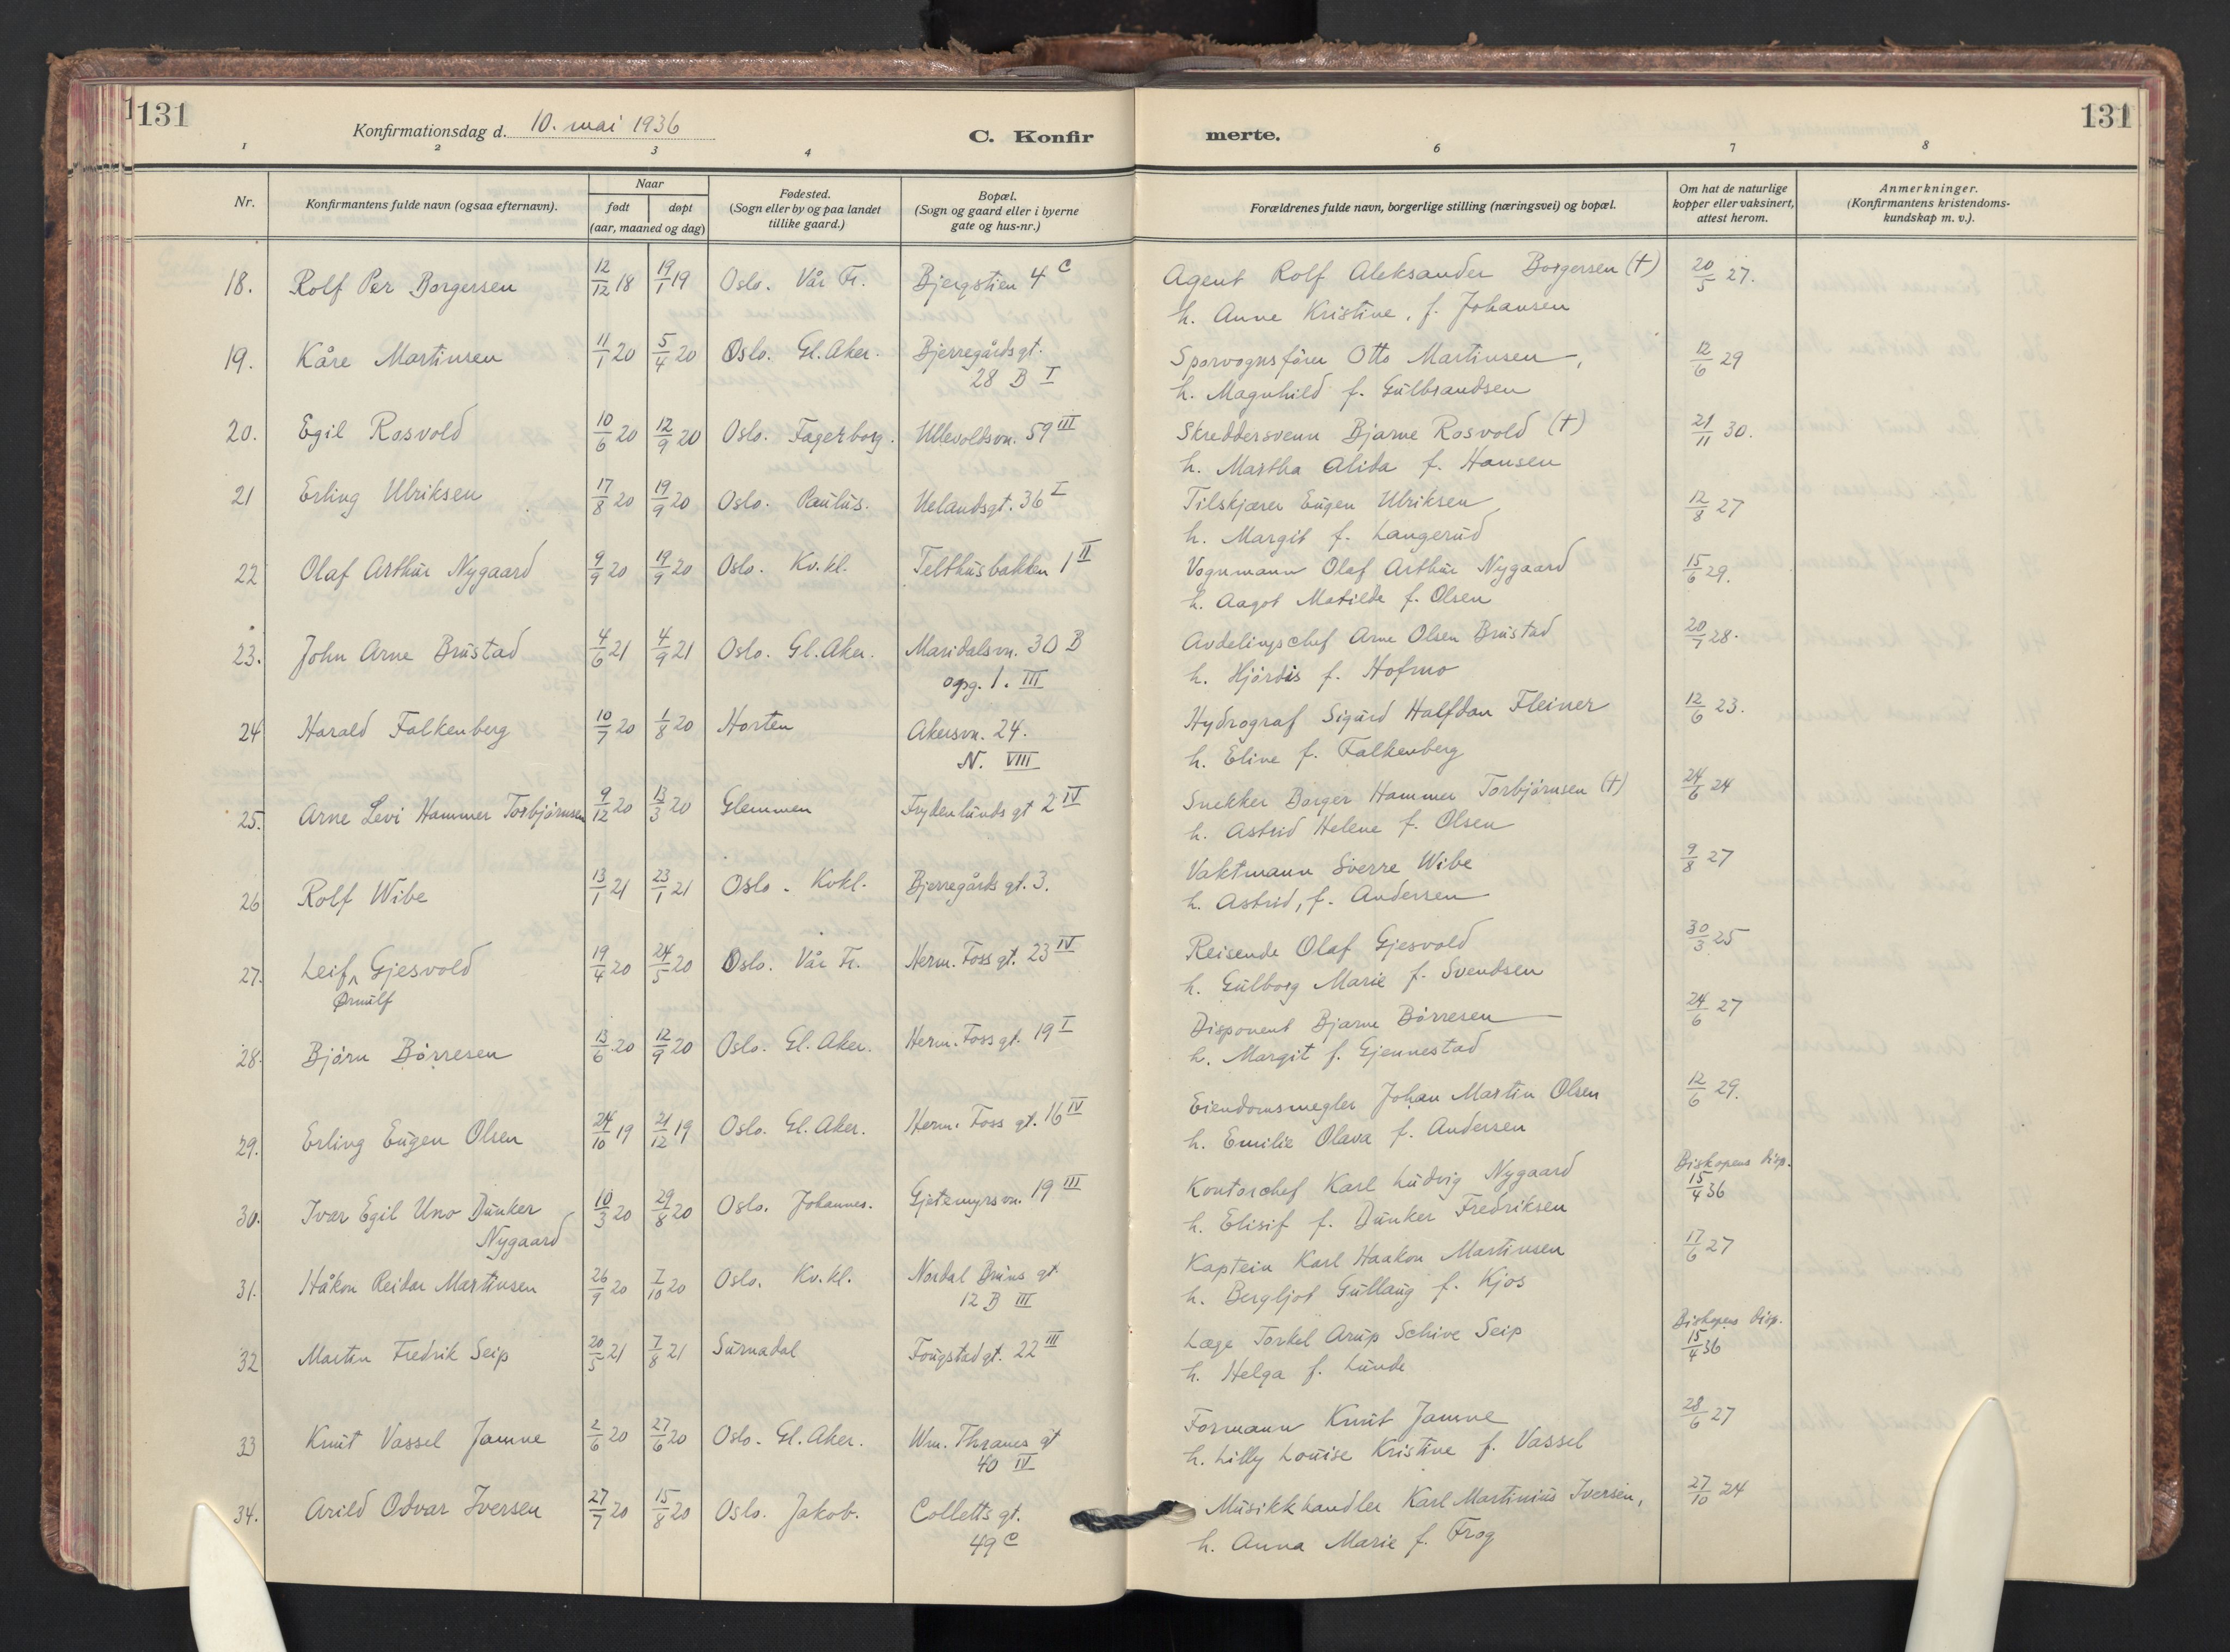 131
131
Konfirmationsdag d. 10. mai 1936
C. Konfir
merte.
1 2 3 4 6 7 8
Nr.
Konfirmantens fulde navn (ogsaa efternavn).
Naar
født døpt
(aar, maaned og dag)
Fødested.
(Sogn eller by og paa landet
tillike gaard.)
Bopæl.
(Sogn og gaard eller i byerne
gate og hus-nr.)
Forældrenes fulde navn, borgerlige stilling (næringsvei) og bopæl.
Om hat de naturlige
kopper eller vaksinert,
attest herom.
Anmerkninger.
(Konfirmantens kristendoms-
kundskap m. v.).
18. Rolf Per Borgersen 12/12 18 19/1 19 Oslo. Vår Fr. Bjergstien 4 C Agent Rolf Aleksander Borgersen (†) 20/5 27.
h. Anne Kristine, f. Johansen
19. Kåre Martinsen 11/1 20 5/4 20 Oslo. Gl. Aker. Bjerregårdsgt. Sporvognsfører Otto Martinsen, 12/6 29
28 B I h. Magnhild f. Gulbrandsen
20. Egil Rosvold 10/6 20 12/9 20 Oslo. Fagerborg. Ullevoldsvn. 59 III Skreddersvenn Bjarne Rosvold (†) 21/11 30.
h. Martha Alida f. Hansen
21 Erling Ulriksen 17/8 20 19/9 20 Oslo. Paulus. Uelandsgt. 36 I Tilskjærer Eugen Ulriksen 12/8 27
h. Margit f. Langerud
22 Olaf Arthur Nygaard 9/9 20 19/9 20 Oslo. Kv.kl. Telthusbakken 1 II Vognmann Olaf Arthur Nygaard 15/6 29.
h. Aagot Matilde f. Olsen
23. John Arne Brustad 4/6 21 4/9 21 Oslo. Gl. Aker. Maridalsvn. 30 B Avdelingschef Arne Olsen Brustad 20/7 28.
opg. 1. III h. Hjördis f. Hofmo
24 Harald Falkenberg 10/7 20 1/8 20 Horten Akersvn. 24. Hydrograf Sigurd Halfdan Fleiner 12/6 23.
N. VIII h. Eline f. Falkenberg
25. Arne Levi Hammer Torbjørnsen 9/12 20 13/3 20 Glemmen Frydenlunds gt 2 IV Snekker Borger Hammer Torbjørnsen (†) 24/6 24
h. Astrid Helene f. Olsen
26 Rolf Wibe 13/1 21 23/1 21 Oslo. Kvkl. Bjerregårds gt. 3. Vaktmann Sverre Wibe 9/8 27
h. Astrid, f. Andersen
27. Leif Gjesvold 19/4 20 24/5 20 Oslo. Vår Fr. Herm. Foss gt. 23 IV Reisende Olaf Gjesvold 30/3 25
Ørnulf h. Gulborg Marie f. Svendsen
28. Bjørn Børresen 13/6 20 12/9 20 Oslo. Gl. Aker. Herm. Foss gt. 19 I Disponent Bjarne Børresen 24/6 27
h. Margit f. Gjennestad
29. Erling Eugen Olsen 24/10 19 21/12 19 Oslo. Gl. Aker. Herm. Foss gt. 16 IV Eiendomsmegler Johan Martin Olsen 12/6 29.
h. Emilie Olava f. Andersen
30. Ivar Egil Uno Dunker 10/3 20 29/8 20 Oslo. Johannes. Gjetemyrsvn. 19 III Kontorchef Karl Ludvig Nygaard Biskopens disp. 15/4 36
Nygaard h. Elisif f. Dunker Fredriksen
31. Håkon Reidar Martinsen 26/9 20 7/10 20 Oslo. Kv.kl. Nordal Bruns gt Kaptein Karl Haakon Martinsen 17/6 27
12 B III h. Bergljot Gullaug f. Kjos
32 Martin Fredrik Seip 20/5 21 7/8 21 Surnadal Fougstad gt. 22 III Læge Torkel Arup Schive Seip Biskopens disp. 15/4 36
h. Helga f. Lunde
33 Knut Vassel Jamne 2/6 20 27/6 20 Oslo. Gl. Aker. Wm. Thranes gt Formann Knut Jamne 28/6 27
40 IV h. Lilly Louise Kristine f. Vassel
34. Arild Odvar Iversen 27/7 20 15/8 20 Oslo. Jakob. Colletts gt. Musikkhandler Karl Martinius Iversen, 27/10 24
49 C h. Anna Marie f. Frog